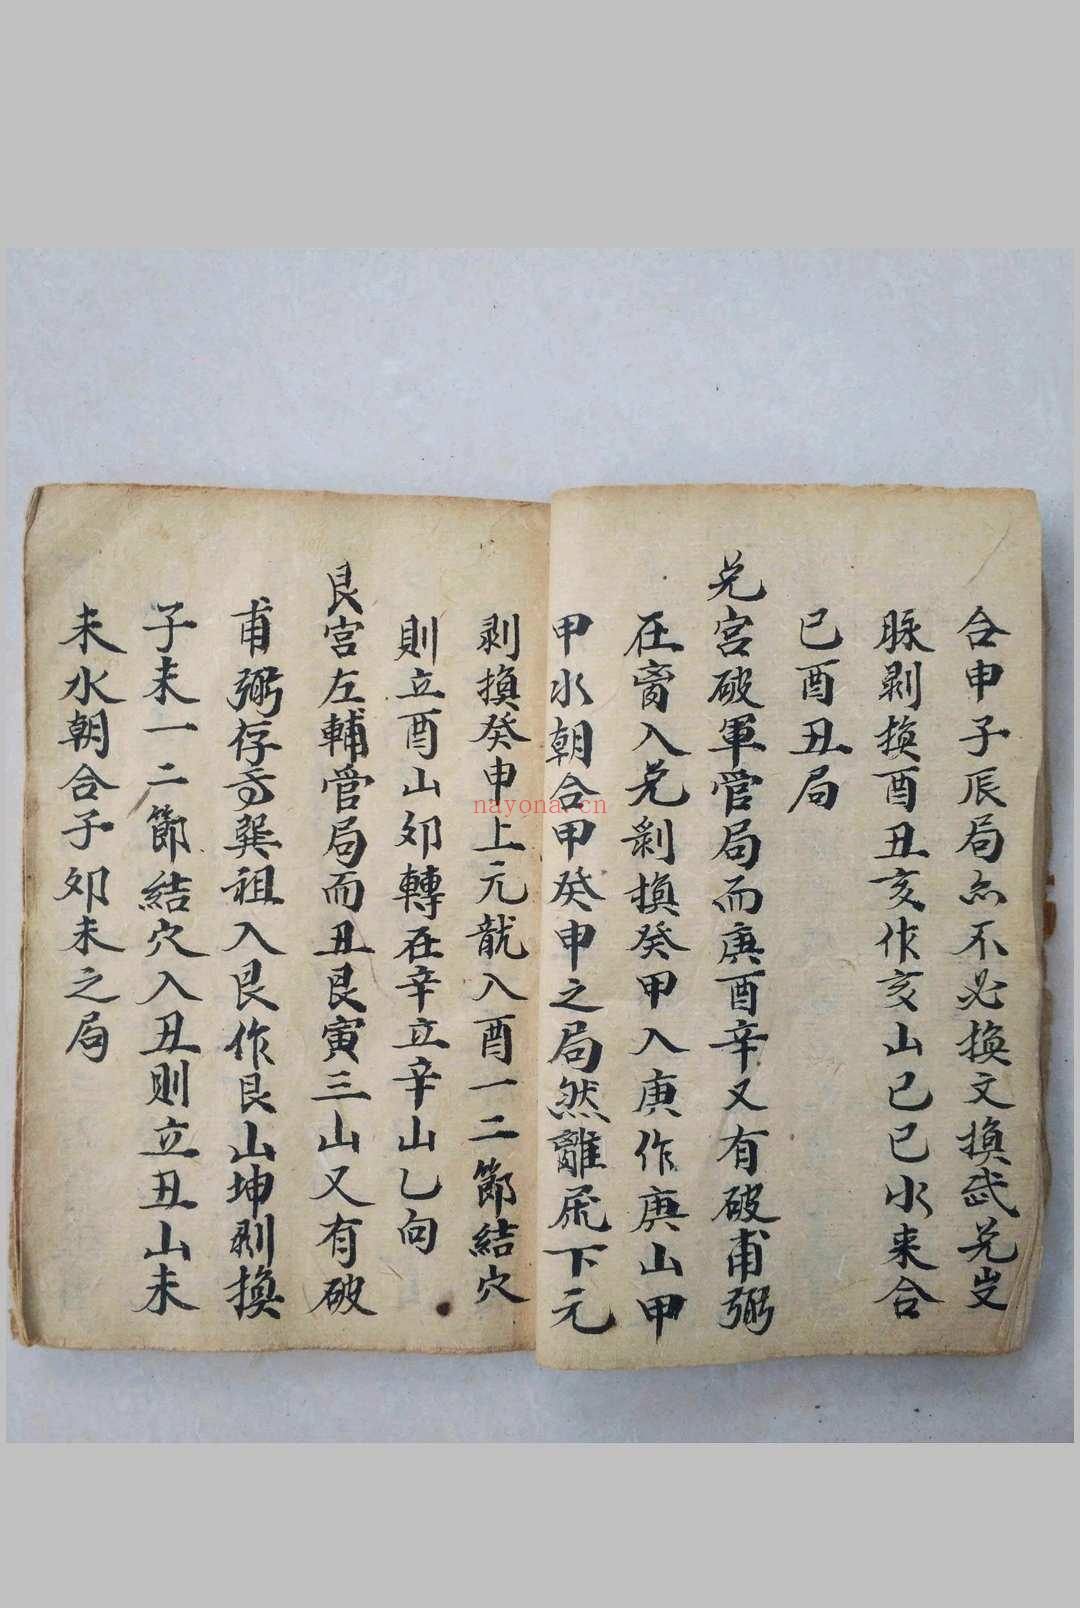 合申子辰局亦不必換文換武兑岁
脉剥換酉丑亥作亥山巳巳水来合
巳酉丑局
兑宮破軍管局而庚酉辛又有破甫弼
在 入兑剥換癸甲入庚作庚山甲
甲水朝合甲癸申之局然離 下元
剥換癸申上元龍入酉一二節結穴
則立酉山卯轉在辛立辛山乙向
艮宮左輔管局而丑艮寅三山又有破
甫弼存 巽祖入艮作艮山坤剥換
子未一二節結穴入丑則立丑山未
未水朝合子卯未之局
nayona.cn